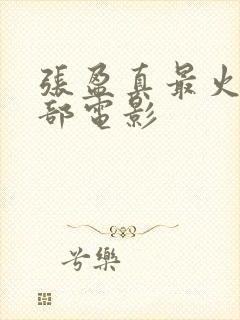 張盈真最火
部電影
兮樂